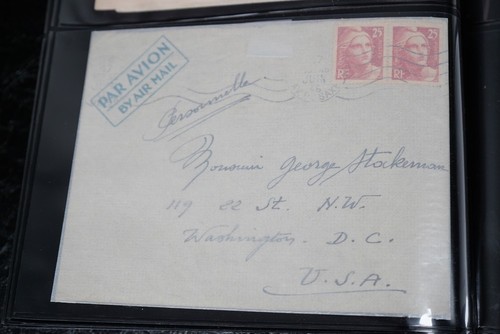 PAR AVION
BY AIR MAIL
25
RF
25
RF
Personnelle
Monsieur George Stakeman
119 22 St. N.W.
Washington. D.C.
U.S.A.